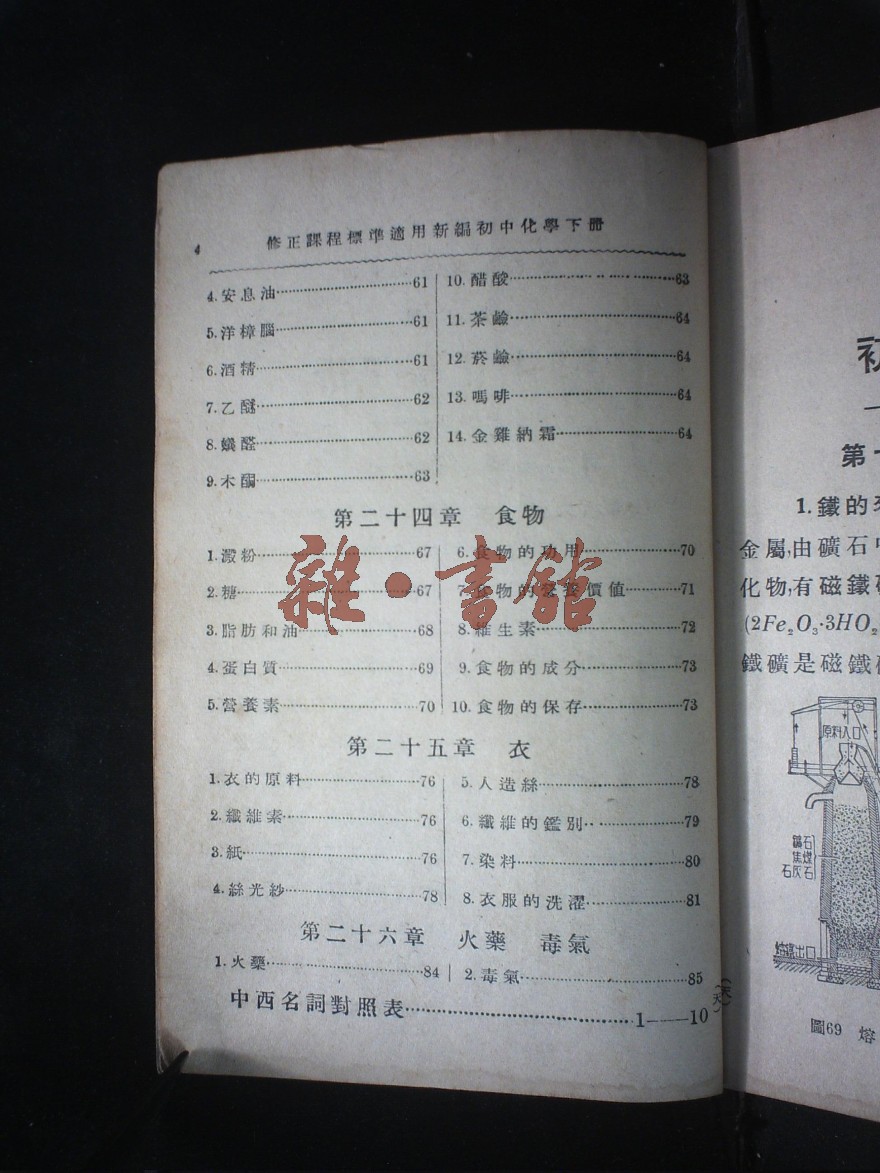 4 修正課程標準適用新編初中化學下冊
4. 安息油……61
5. 洋樟腦……61
6. 酒精……61
7. 乙醚……62
8. 蟻醛……62
9. 木酮……63
10. 醋酸……63
11. 茶鹼……64
12. 菸鹼……64
13. 嗎啡……64
14. 金雞納霜……64
第二十四章 食物
1. 澱粉……67
2. 糖……67
3. 脂肪和油……68
4. 蛋白質……69
5. 營養素……70
6. 食物的功用……70
7. 食物的營養價值……71
8. 維生素……72
9. 食物的成分……73
10. 食物的保存……73
第二十五章 衣
1. 衣的原料……76
2. 纖維素……76
3. 紙……76
4. 絲光紗……78
5. 人造絲……78
6. 纖維的鑑別……79
7. 染料……80
8. 衣服的洗濯……81
第二十六章 火藥 毒氣
1. 火藥……84
2. 毒氣……85
中西名詞對照表……1——10
(天)
(天)
雜·書館
初
第十
1. 鐵的
金屬,由礦石
化物,有磁鐵
(2Fe₂O₃·3HO₂
鐵礦是磁鐵
原料入口
鐵石
焦煤
石灰石
出口
圖69 熔